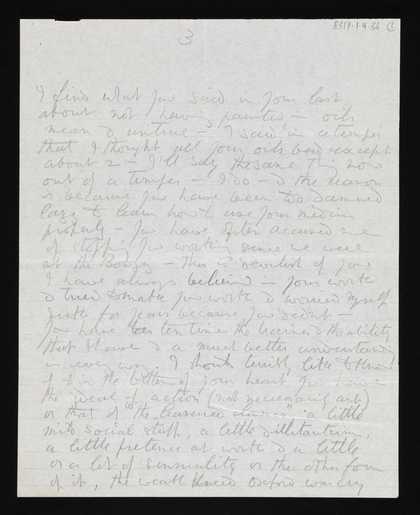 3
I find what you said in your last
about not having painted – oils
mean & untrue – I said in a temper
that I thought all your oils bad except
about 2 – I'll say the same thing now
out of a temper – I do – & the reason
is because you have been too damned
lazy to learn how to use your medium
properly – you have often accused me
of stopping you working since we were
at the – this is of you
I have always believed – your work
& tried to make you work & worried myself
for years because you didn't –
you have ten times the & the ability
that I have & a much better understanding
in every way. I should like to
if in the bottom of your heart you
the ideal of action (not necessarily art)
or that of the – a little
social stuff, a little dilettantism,
a little pretence at work & a little
or a lot of sensuality or the other form
of it, the weak kneed Oxford